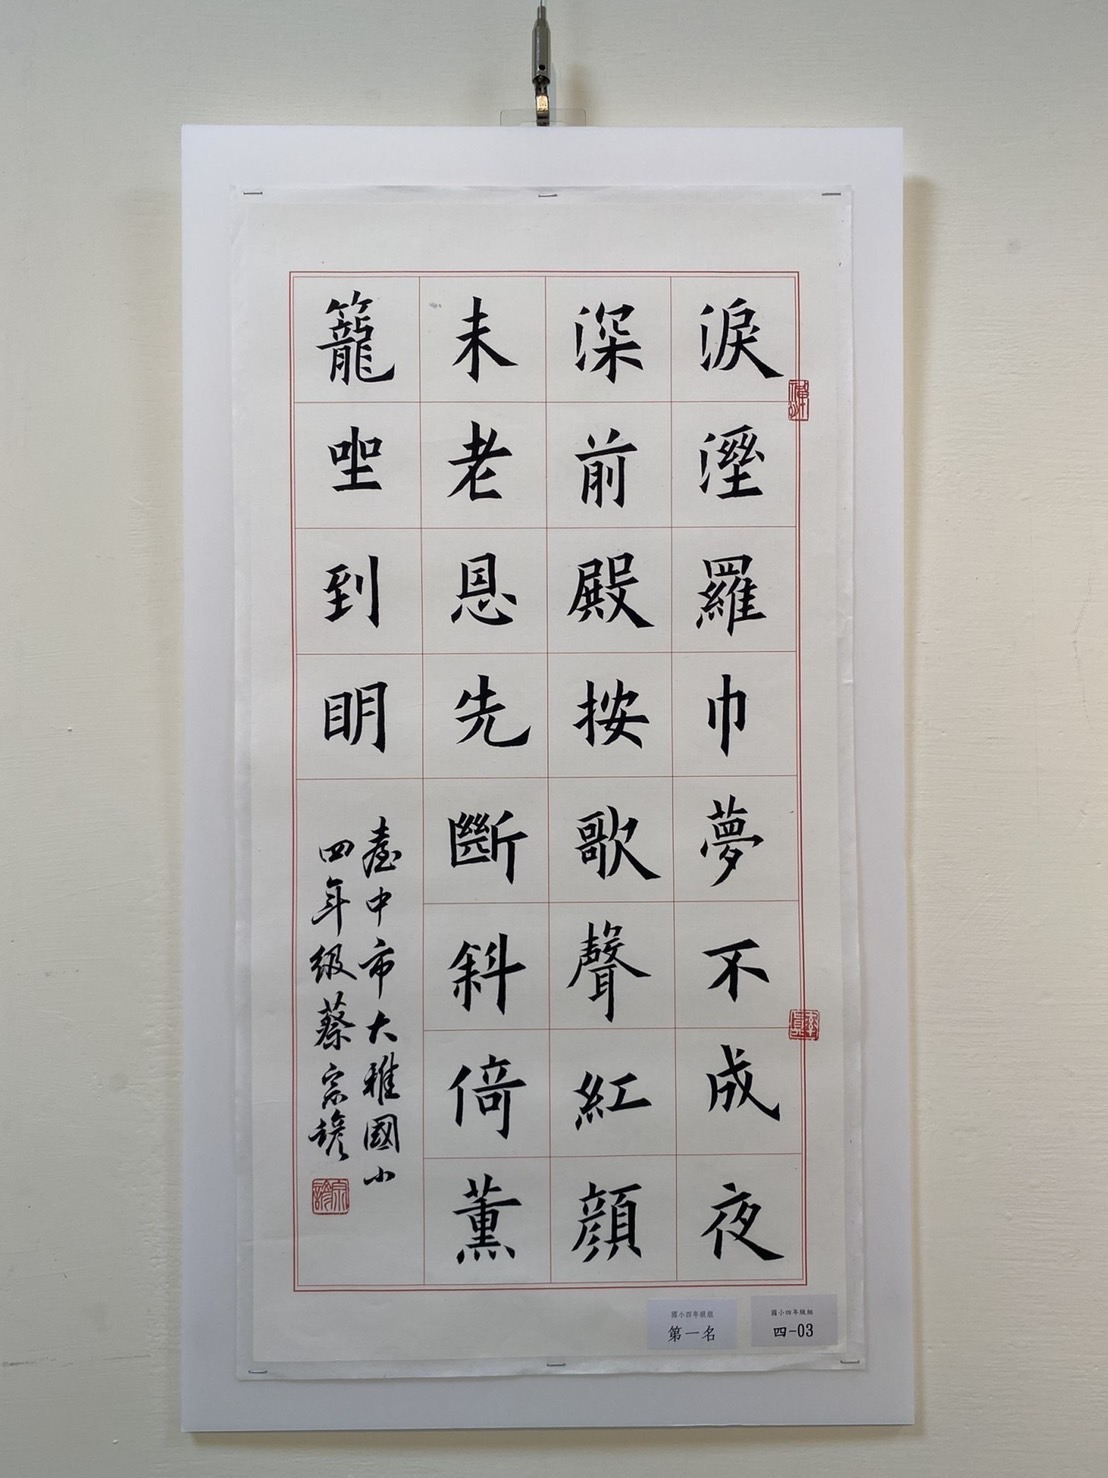 淚溼羅巾夢不成夜
深前殿按歌聲紅顔
未老恩先斷斜倚薰
籠坐到明
臺中市大雅國小
四年級蔡宗諺
國小四年級組
第一名
國小四年級組
四-03